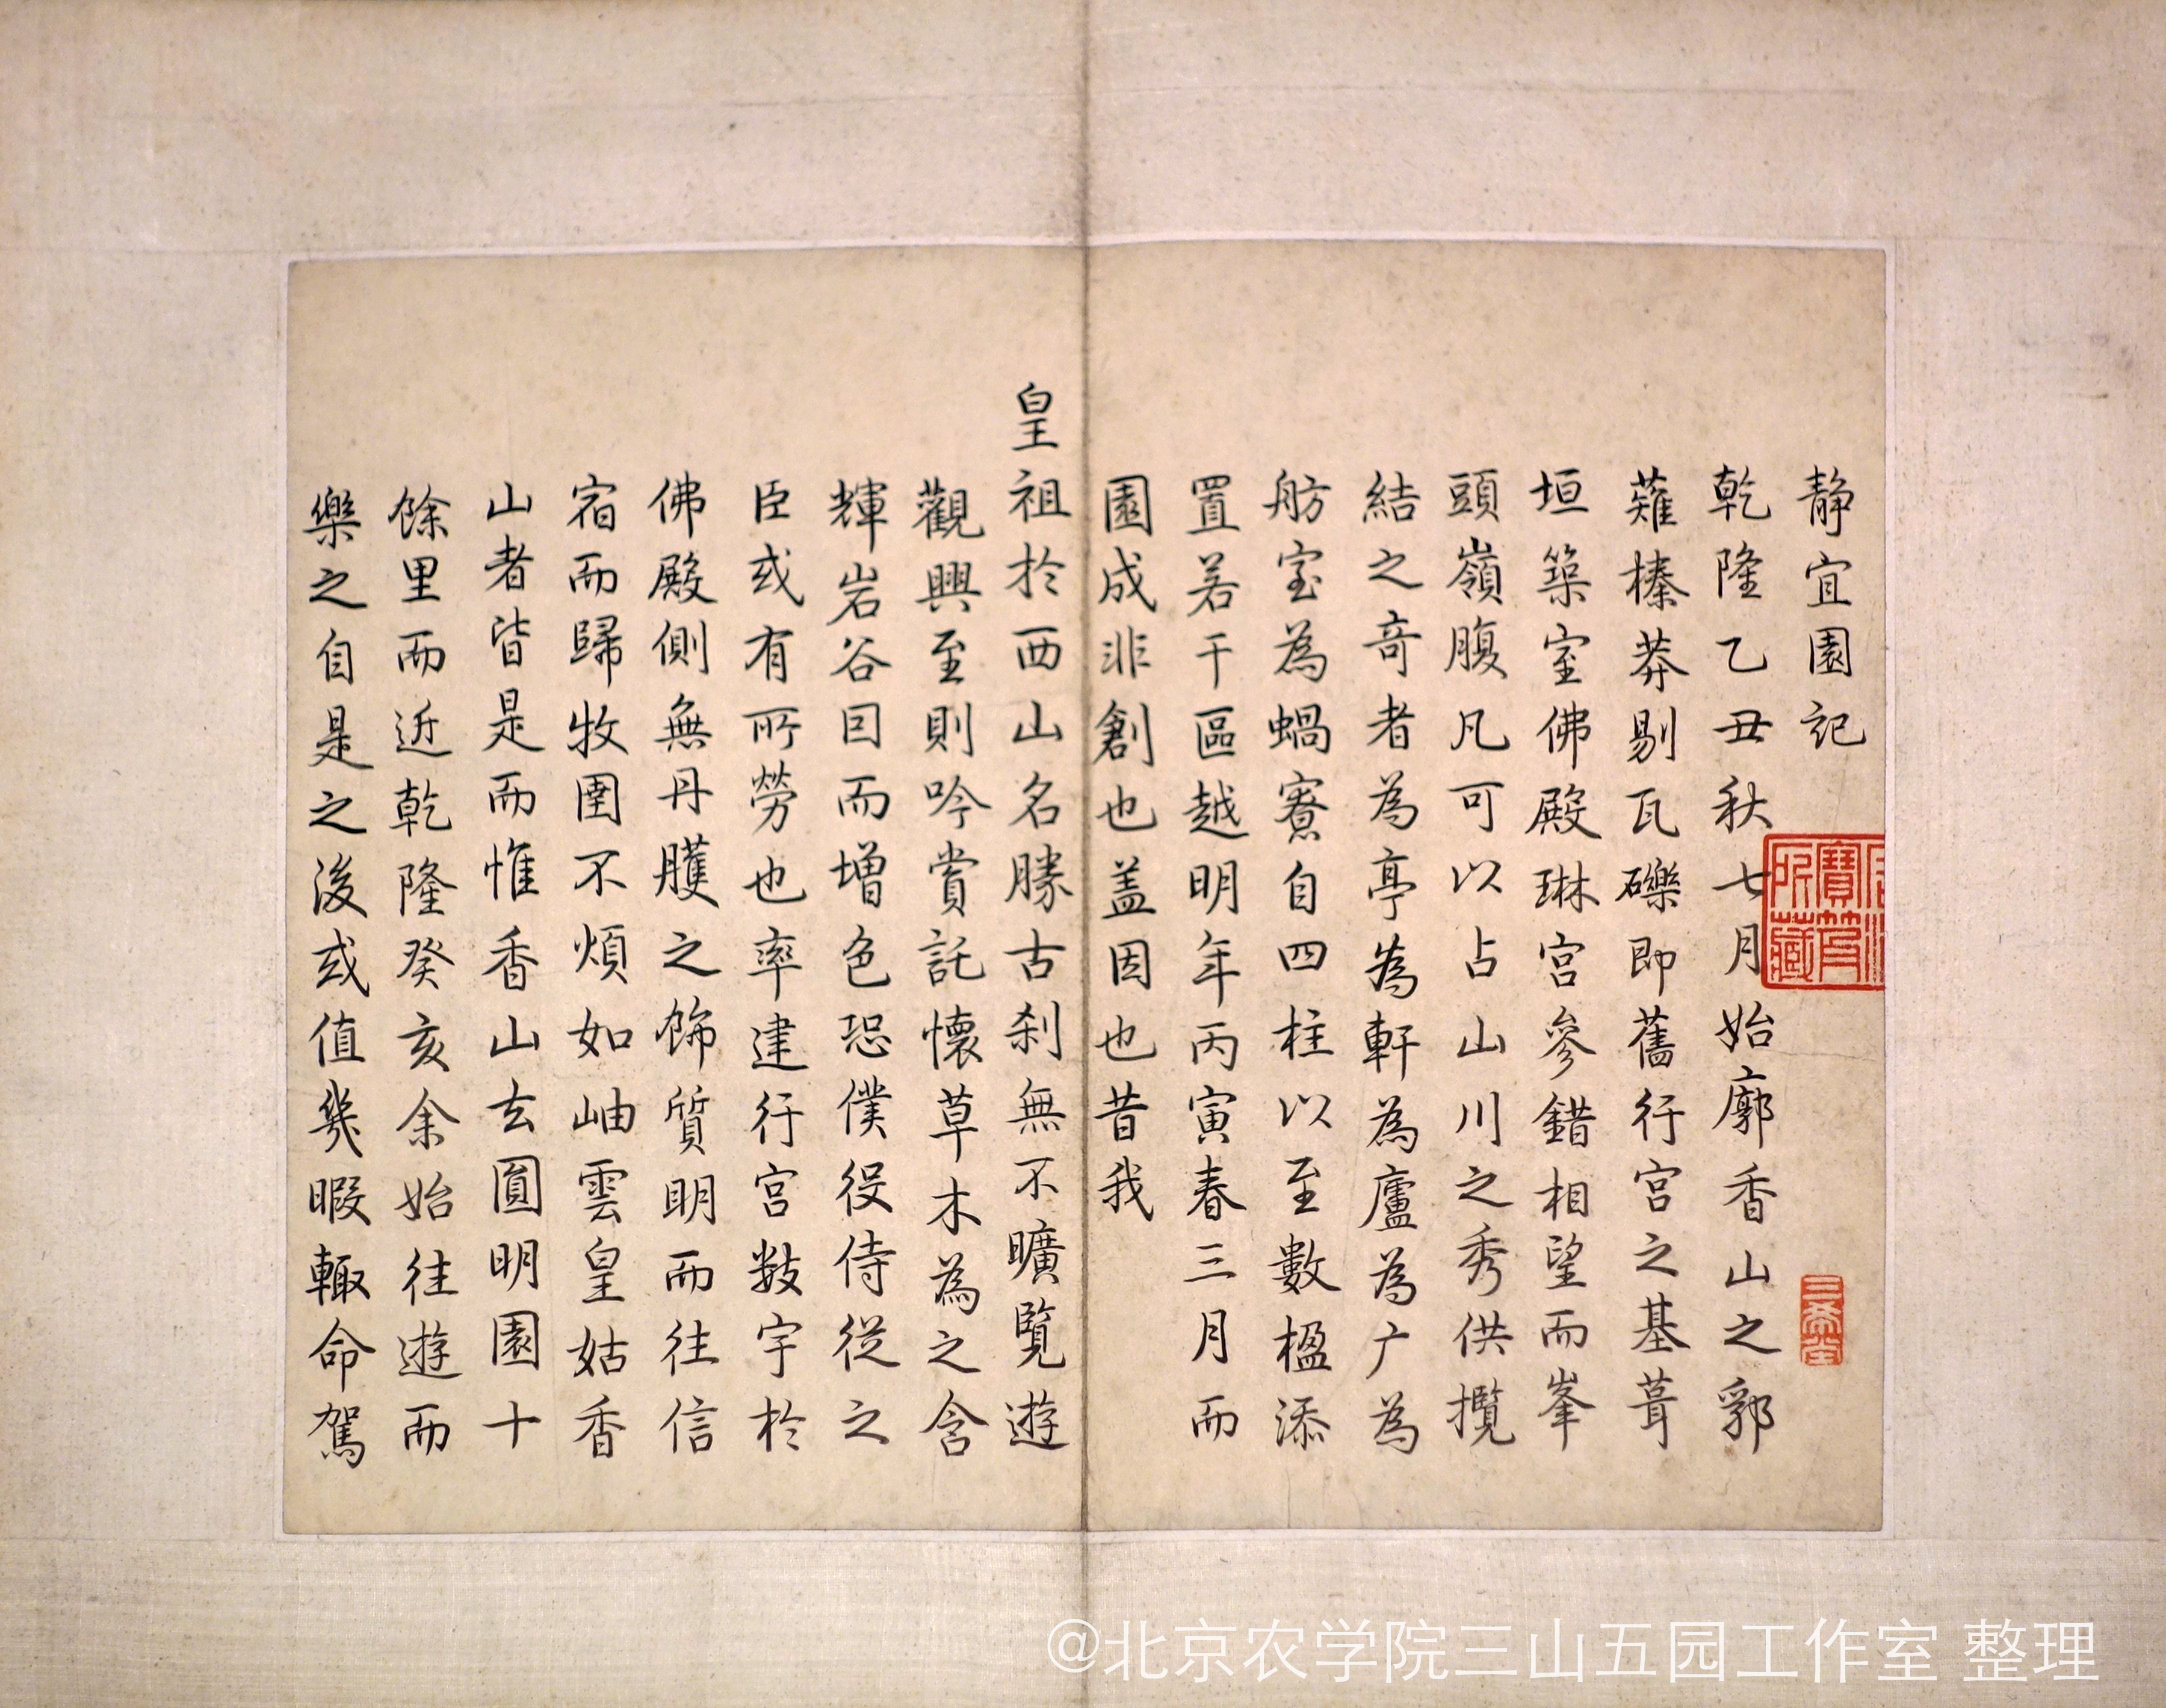 静宜園記
乾隆乙丑秋七月始廓香山之郛
薙榛莽剔瓦礫即舊行宮之基葺
垣築室佛殿琳宮參錯相望而峯
頭嶺腹凡可以占山川之秀供攬
結之奇者為亭為軒為廬為广為
舫室為蝸寮自四柱以至數楹添
置若干區越明年丙寅春三月而
園成非創也盖因也昔我
皇祖於西山名勝古刹無不曠覽遊
觀興至則吟賞託懷草木為之含
輝岩谷因而增色恐僕役侍從之
臣或有所勞也率建行宮數宇於
佛殿側無丹雘之飾質明而往信
宿而歸牧圉不煩如岫雲皇姑香
山者皆是而惟香山去圓明園十
餘里而近乾隆癸亥余始往遊而
樂之自是之後或值幾暇輒命駕
三希堂
@北京农学院三山五园工作室 整理